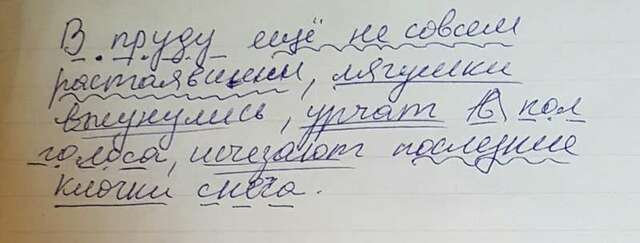 В пруду ещё не совсем
растаявшем, лягушки
вжунулись, урчат в пол
голоса, исчезают последние
клочки снега.